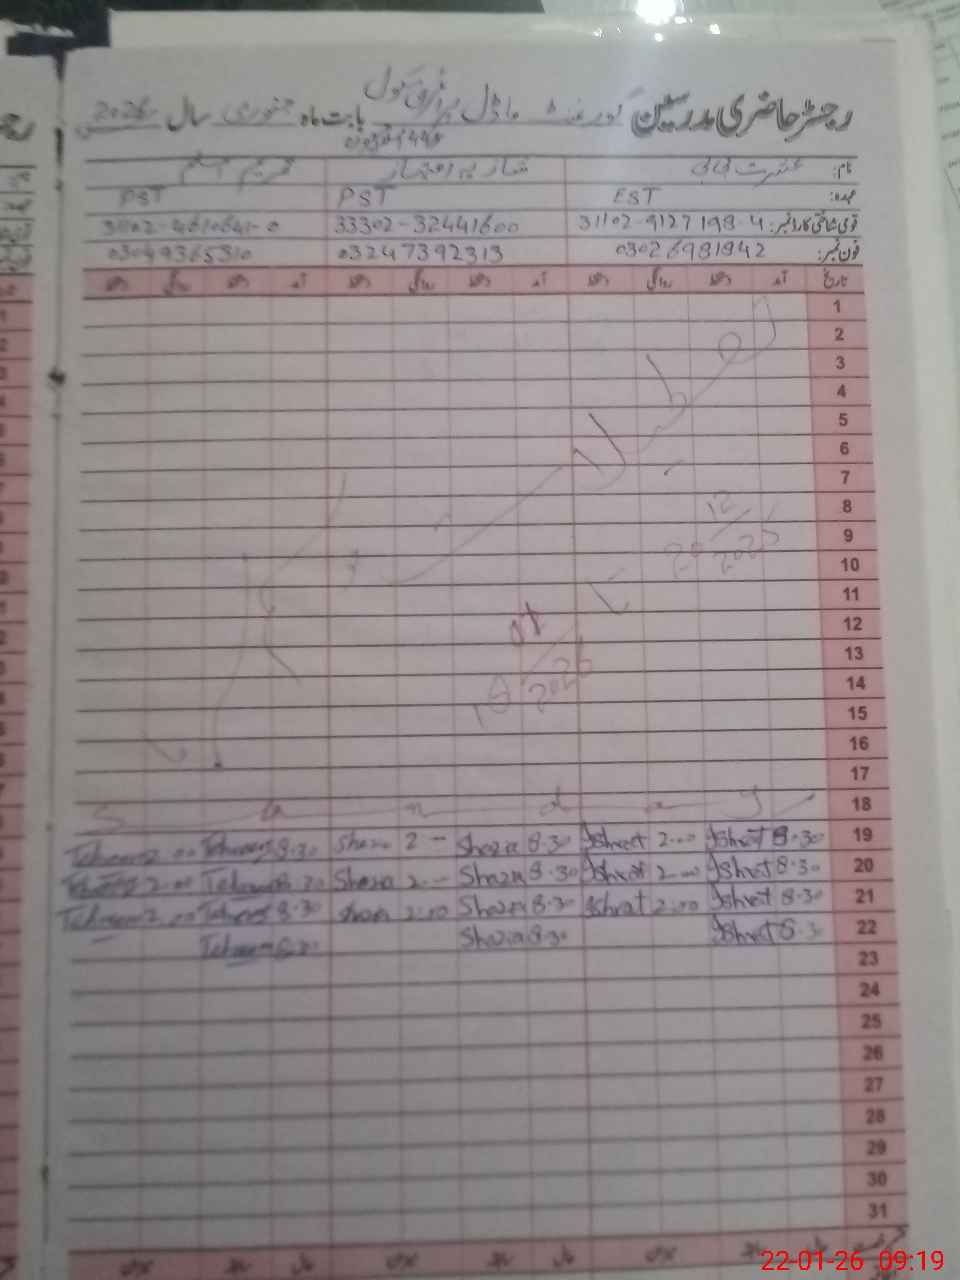 رجسٹر حاضری مدرسین گورنمنٹ ماڈل پرائمری سکول بابت ماہ جنوری سال 2026
نام: عشرت بی بی شازیہ
عہدہ: EST PST PST
قومی شناختی کارڈ نمبر: 31102-9127198-4 33302-32441600 31102-4610641-0
فون نمبر: 03026981942 03247392313 03049365310
تاریخ آمد دستخط روانگی دستخط آمد دستخط روانگی دستخط آمد دستخط روانگی دستخط
1
2
3
4
5
6
7
8
9
10
11
12
13
14
15
16
17
تعطیلات
20/12/2025
19/01/2026
S u n d a y 18
2.00 8.30 Shazia 2 - Shazia 8.30 Ishrat 2.00 Ishrat 8.30 19
2.00 8.30 Shazia 2.- Shazia 8.30 Ishrat 2.00 Ishrat 8.30 20
2.00 8.30 Shazia 2.00 Shazia 8.30 Ishrat 2.00 Ishrat 8.30 21
8.30 Shazia 8.30 Ishrat 8.30 22
23
24
25
26
27
28
29
30
31
22-01-26 09:19